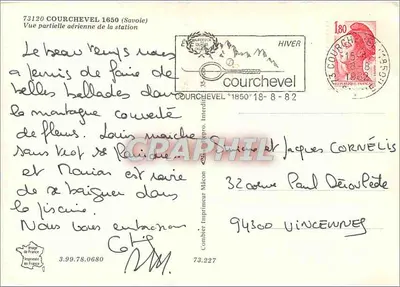 73120 COURCHEVEL 1650 (Savoie)
Vue partielle aérienne de la station
Le beau temps nous
a permis de faire de
belles ballades dans
la montagne couverte
de fleurs. Louis marche
sans trop se fatiguer...
et Marion est ravie
de se baigner dans
la piscine.
Nous vous embrassons
HIVER
courchevel
COURCHEVEL "1850" 18-8-82
1,80
73 COURCHEVEL 1850
18-8
1982
Suzanne et Jacques CORNÉLIS
32 avenue Paul Déroulède
94300 VINCENNES
Combier Imprimeur Mâcon
Image de France
Imprimé en France
3.99.78.0680
73.227
CPAPHIL